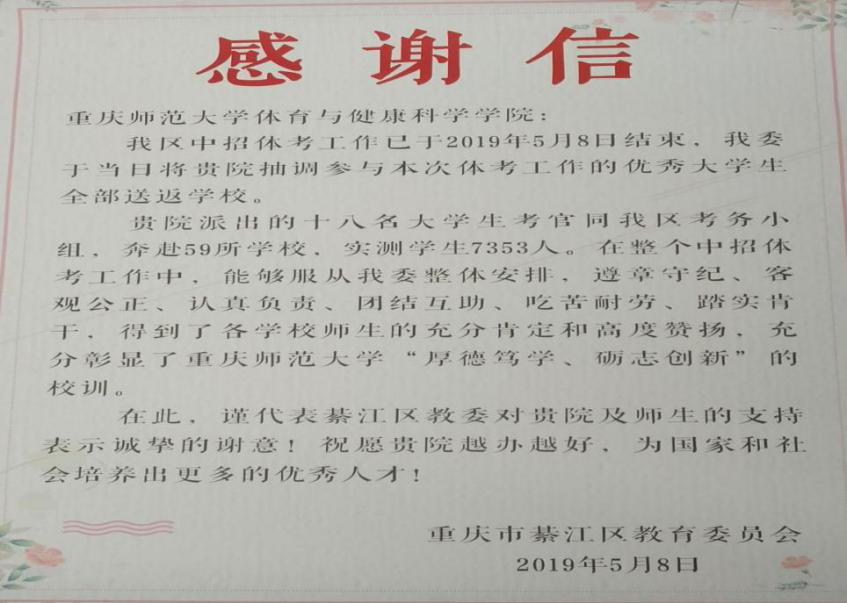 感谢信
重庆师范大学体育与健康科学学院：
我区中招体考工作已于2019年5月8日结束，我委
于当日将贵院抽调参与本次体考工作的优秀大学生
全部送返学校。
贵院派出的十八名大学生考官同我区考务小
组，奔赴59所学校，实测学生7353人。在整个中招体
考工作中，能够服从我委整体安排，遵章守纪、客
观公正、认真负责、团结互助、吃苦耐劳、踏实肯
干，得到了各学校师生的充分肯定和高度赞扬，充
分彰显了重庆师范大学“厚德笃学、砺志创新”的
校训。
在此，谨代表綦江区教委对贵院及师生的支持
表示诚挚的谢意！祝愿贵院越办越好，为国家和社
会培养出更多的优秀人才！
重庆市綦江区教育委员会
2019年5月8日